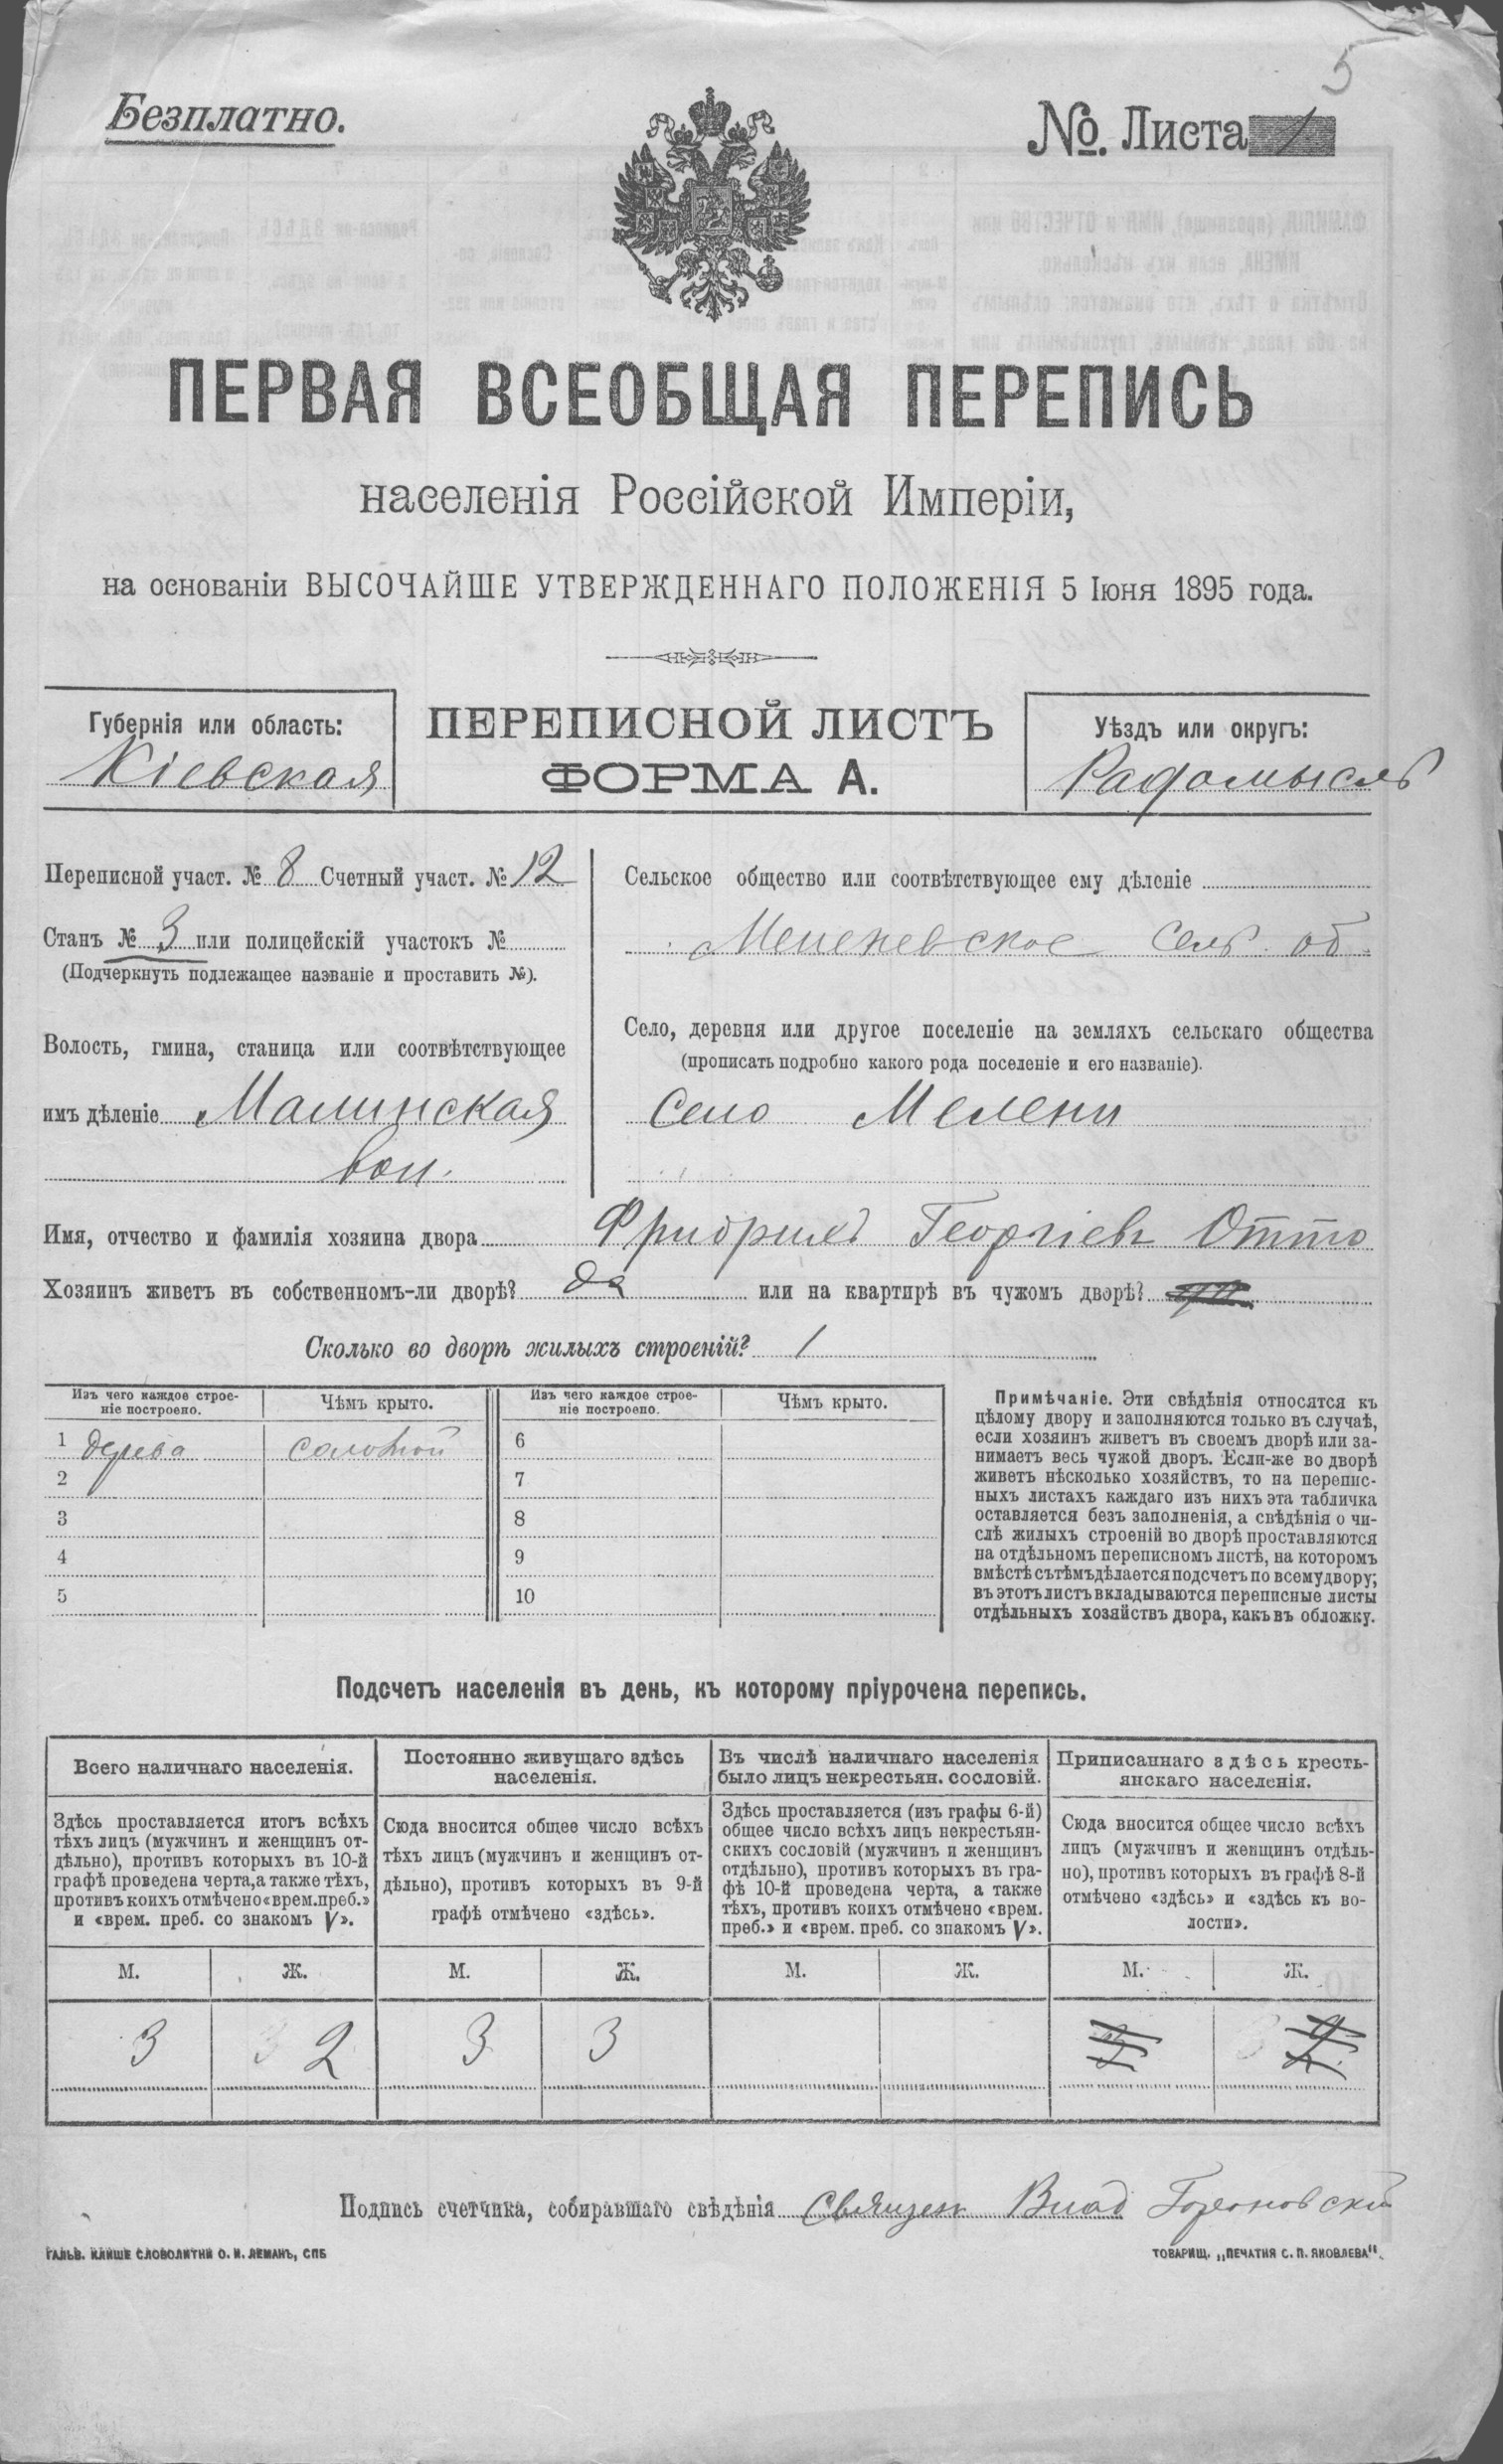 5
Безплатно.
№. Листа 1
ПЕРВАЯ ВСЕОБЩАЯ ПЕРЕПИСЬ
населенія Россійской Имперіи,
на основаніи ВЫСОЧАЙШЕ УТВЕРЖДЕННАГО ПОЛОЖЕНІЯ 5 Іюня 1895 года.
Губернія или область:
Кіевская
ПЕРЕПИСНОЙ ЛИСТЪ
ФОРМА А.
Уѣздъ или округъ:
Радомысль
Переписной участ. № 8 Счетный участ. № 12
Станъ № 3 или полицейскій участокъ №
(Подчеркнуть подлежащее названіе и проставить №).
Волость, гмина, станица или соотвѣтствующее
имъ дѣленіе Малинская
вол.
Сельское общество или соотвѣтствующее ему дѣленіе
Меленевское сель. об
Село, деревня или другое поселеніе на земляхъ сельскаго общества
(прописать подробно какого рода поселеніе и его названіе).
Село Мелени
Имя, отчество и фамилія хозяина двора Фридрихъ Георгіевъ Отто
Хозяинъ живетъ въ собственномъ-ли дворѣ? да или на квартирѣ въ чужомъ дворѣ?
Сколько во дворѣ жилыхъ строеній? 1
Изъ чего каждое строе-
ніе построено.
Чѣмъ крыто.
Изъ чего каждое строе-
ніе построено.
Чѣмъ крыто.
1 дерева соломой 6
2 7
3 8
4 9
5 10
Примѣчаніе. Эти свѣдѣнія относятся къ
цѣлому двору и заполняются только въ случаѣ,
если хозяинъ живетъ въ своемъ дворѣ или за-
нимаетъ весь чужой дворъ. Если-же во дворѣ
живетъ нѣсколько хозяйствъ, то на перепис-
ныхъ листахъ каждаго изъ нихъ эта табличка
оставляется безъ заполненія, а свѣдѣнія о чи-
слѣ жилыхъ строеній во дворѣ проставляются
на отдѣльномъ переписномъ листѣ, на которомъ
вмѣстѣ съ тѣмъ дѣлается подсчетъ по всему двору;
въ этотъ листъ вкладываются переписные листы
отдѣльныхъ хозяйствъ двора, какъ въ обложку.
Подсчетъ населенія въ день, къ которому пріурочена перепись.
Всего наличнаго населенія.
Здѣсь проставляется итогъ всѣхъ
тѣхъ лицъ (мужчинъ и женщинъ от-
дѣльно), противъ которыхъ въ 10-й
графѣ проведена черта, а также тѣхъ,
противъ коихъ отмѣчено «врем. преб.»
и «врем. преб. со знакомъ V».
Постоянно живущаго здѣсь
населенія.
Сюда вносится общее число всѣхъ
тѣхъ лицъ (мужчинъ и женщинъ от-
дѣльно), противъ которыхъ въ 9-й
графѣ отмѣчено «здѣсь».
Въ числѣ наличнаго населенія
было лицъ некрестьян. сословій.
Здѣсь проставляется (изъ графы 6-й)
общее число всѣхъ лицъ некрестьян-
скихъ сословій (мужчинъ и женщинъ
отдѣльно), противъ которыхъ въ гра-
фѣ 10-й проведена черта, а также
тѣхъ, противъ коихъ отмѣчено «врем.
преб.» и «врем. преб. со знакомъ V».
Приписаннаго здѣсь кресть-
янскаго населенія.
Сюда вносится общее число всѣхъ
лицъ (мужчинъ и женщинъ отдѣль-
но), противъ которыхъ въ графѣ 8-й
отмѣчено «здѣсь» и «здѣсь къ во-
лости».
М. Ж. М. Ж. М. Ж. М. Ж.
3 2 3 3
Подпись счетчика, собиравшаго свѣдѣнія Священ Влад
ГАЛЬВ. КЛИШЕ СЛОВОЛИТНИ О. И. ЛЕМАНЪ, СПБ
ТОВАРИЩ. „ПЕЧАТНЯ С. П. ЯКОВЛЕВА".